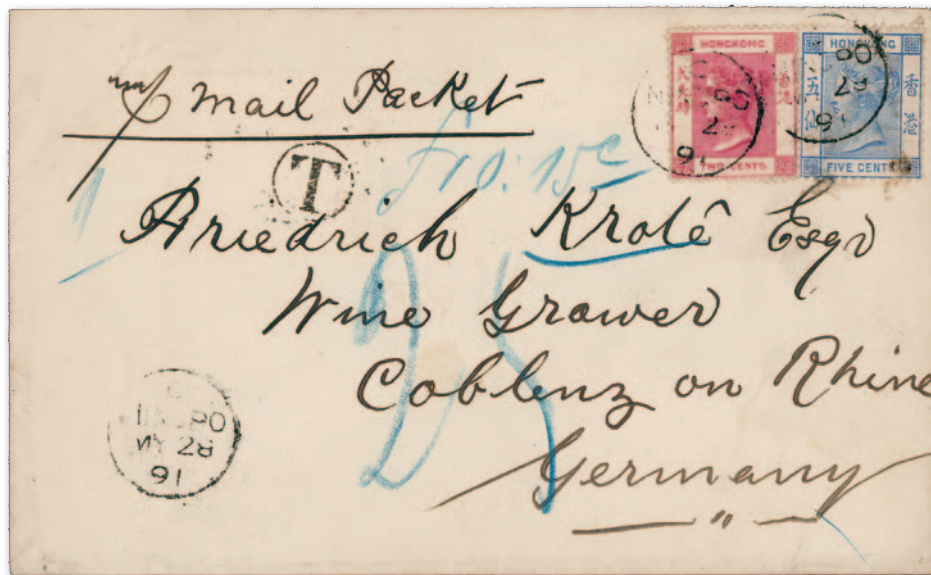 HONGKONG
HONGKONG
香港
TWO CENTS
FIVE CENTS
p Mail Packet
T
f 10: 15c
Friedrich Krotê Esqr
Wine Grower
Coblenz on Rhine
Germany
25
NINGPO
MY 28
91